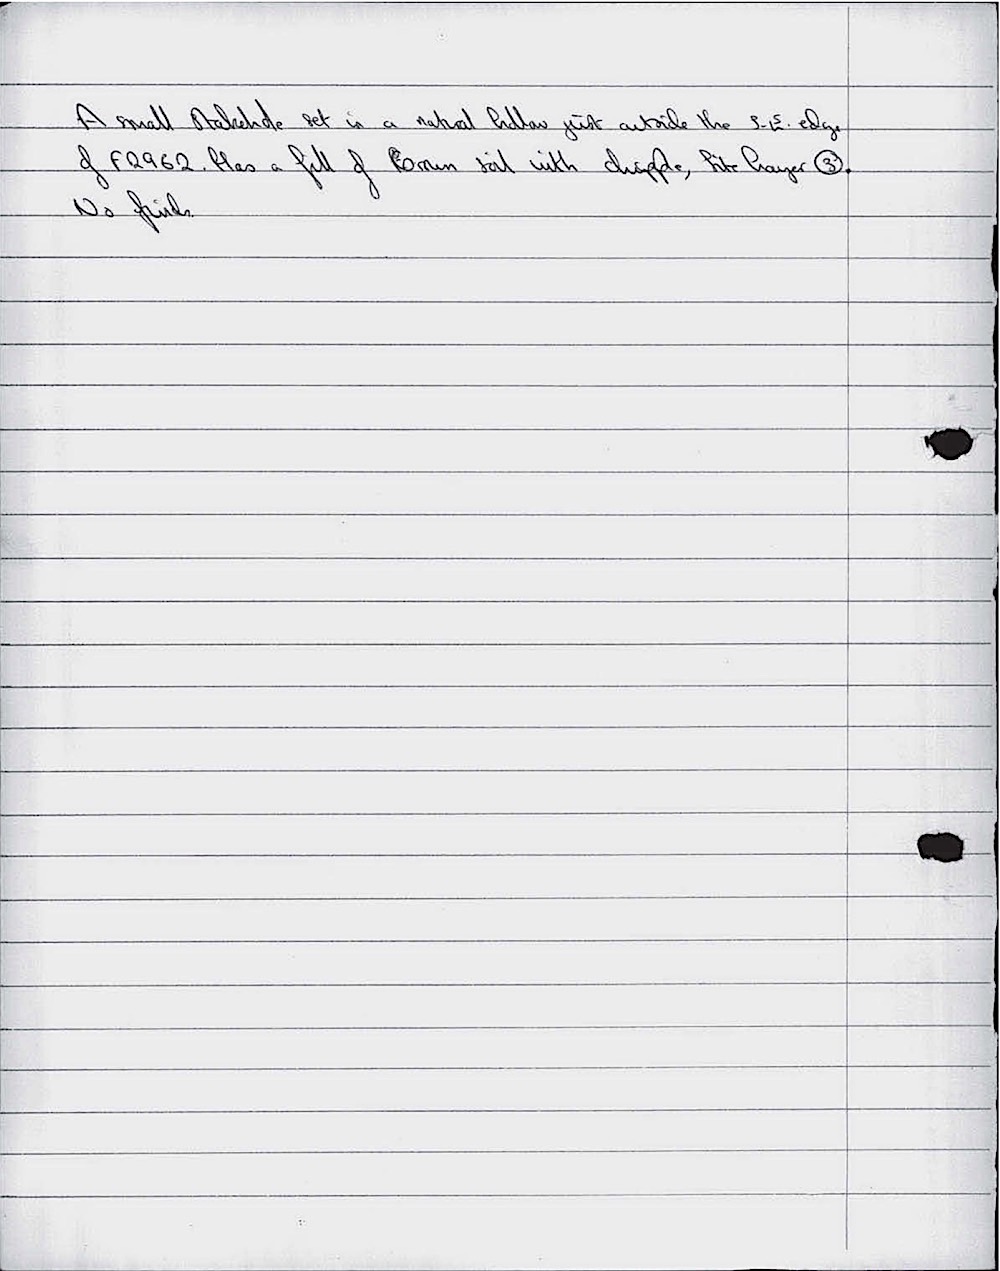 A small Stakehole set in a natural hollow just outside the S.E. edge
of F2962. Has a fill of Brown soil with Site Layer ③.
No finds.